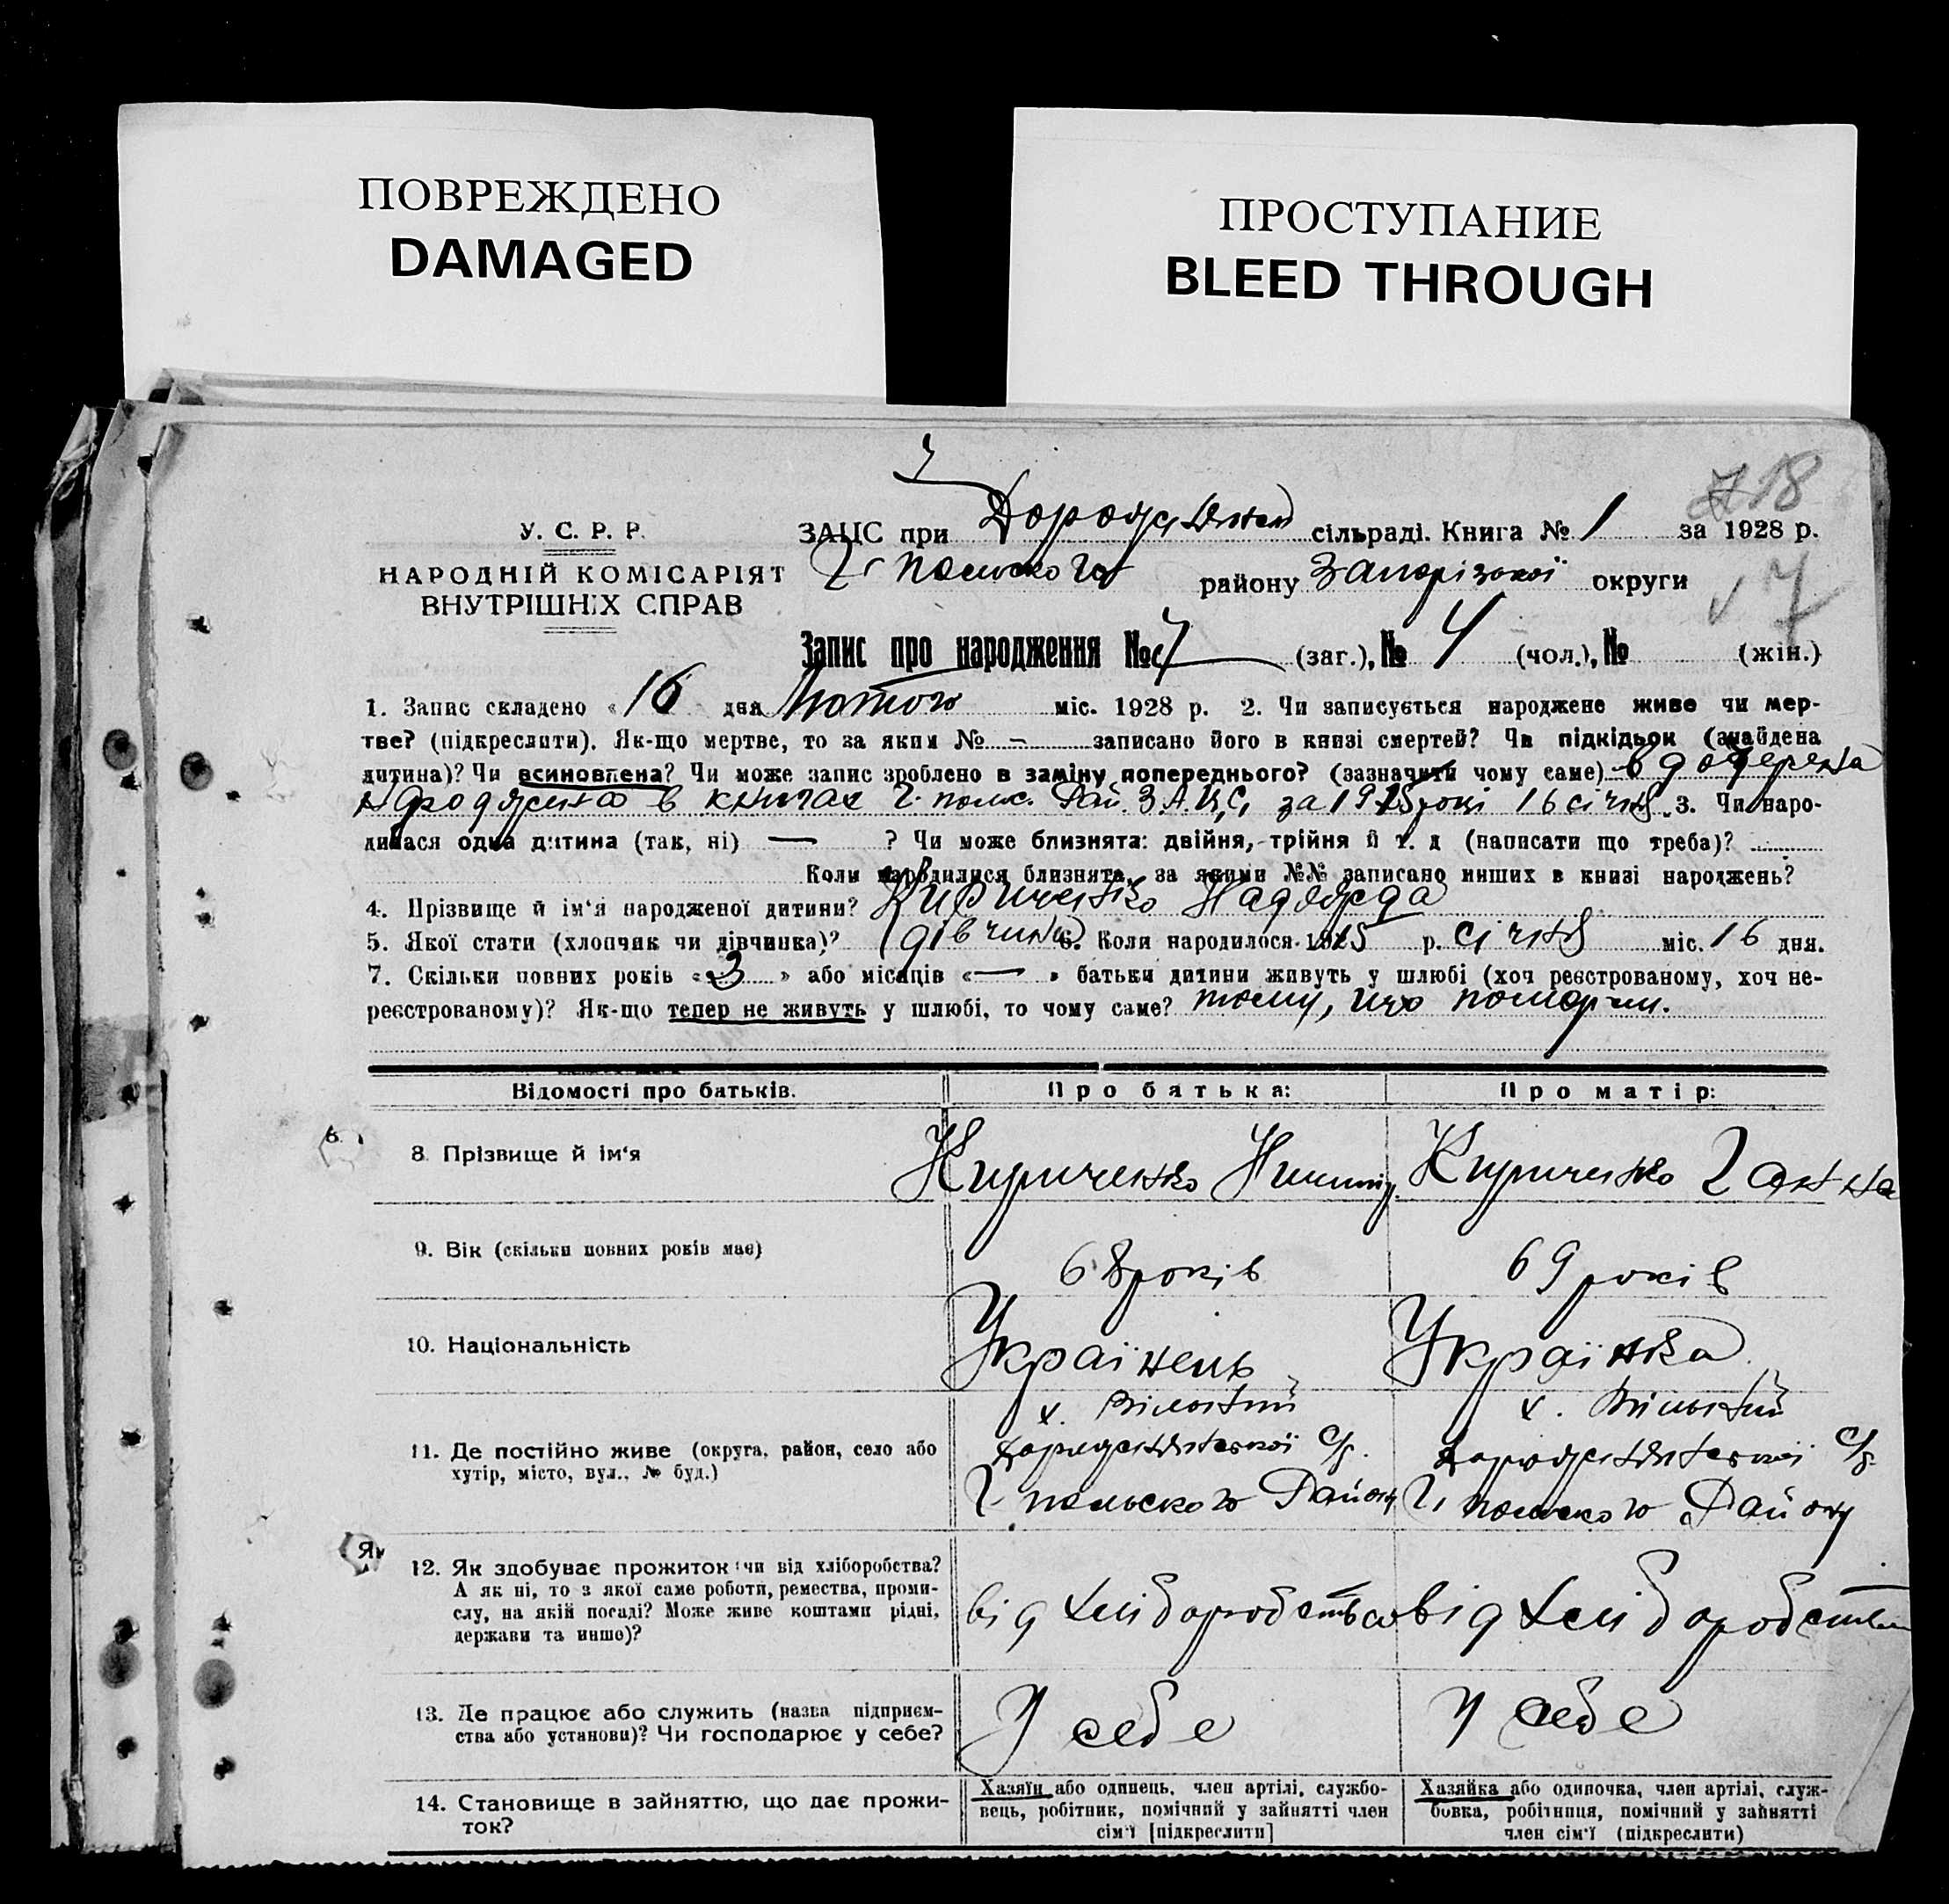 ПОВРЕЖДЕНО
DAMAGED
ПРОСТУПАНИЕ
BLEED THROUGH
18
У. С. Р. Р.
НАРОДНІЙ КОМІСАРІЯТ
ВНУТРІШНІХ СПРАВ
ЗАЦС при сільраді. Книга № 1 за 1928 р.
Г. польского району Запорізької округи
7
Запис про народження № 7 (заг.), № 4 (чол.), № (жін.)
1. Запис складено « 16 дня Лютого міс. 1928 р. 2. Чи записується народжене живе чи мер-
тве? (підкреслити). Як-що мертве, то за яким № — записано його в книзі смертей? Чи підкідьок (знайдена
дитина)? Чи всиновлена? Чи може запис зроблено в заміну попереднього? (зазначити чому саме)
народження в книгах Г. польс. Рай. З.А.Ц.С. за 1925 рокі 16 січня 3. Чи наро-
дилася одна дитина (так, ні) — ? Чи може близнята: двійня, трійня й т. д (написати що треба)?
Коли народилися близнята, за якими №№ записано инших в книзі народжень?
4. Прізвище й ім‘я народженої дитини? Кириченко Надежда
5. Якої стати (хлопчик чи дівчинка)? (дівчина) 6. Коли народилося 1925 р. січня міс. 16 дня.
7. Скільки повних років « 3 » або місяців « — » батьки дитини живуть у шлюбі (хоч реєстрованому, хоч не-
реєстрованому)? Як-що тепер не живуть у шлюбі, то чому саме? тому, що померли.
Відомості про батьків. Про батька: Про матір:
8. Прізвище й ім‘я Кириченко Кириченко Ганна
9. Вік (скільки повних років має) 68 років 69 років
10. Національність Українець Українка
11. Де постійно живе (округа, район, село або
хутір, місто, вул., № буд.)
х. Вільний х. Вільний
с/р. с/р.
Г. польского Району Г. польского Району
12. Як здобуває прожиток: чи від хліборобства?
А як ні, то з якої саме роботи, ремества, проми-
слу, на якій посаді? Може живе коштами рідні,
держави та инше)?
від хліборобства від хліборобства
13. Де працює або служить (назва підприєм-
ства або установи)? Чи господарює у себе?
У себе У себе
14. Становище в зайняттю, що дає прожи-
ток?
Хазяїн або одинець, член артілі, службо-
вець, робітник, помічний у зайнятті член
сім‘ї [підкреслити]
Хазяйка або одиночка, член артілі, служ-
бовка, робітниця, помічний у зайнятті
член сім‘ї (підкреслити)